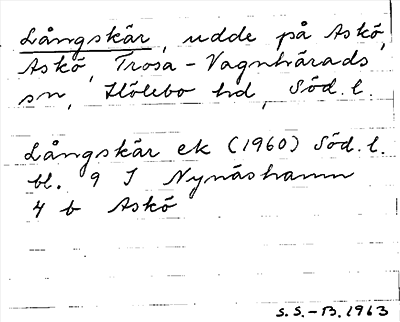 Långskär, udde på Askö,
Askö, Trosa-Vagnhärads
sn, Hölebo hd, Söd. l.
Långskär ek (1960) Söd. l.
bl. 9 I Nynäshamn
4 b Askö
S.S.-B. 1963